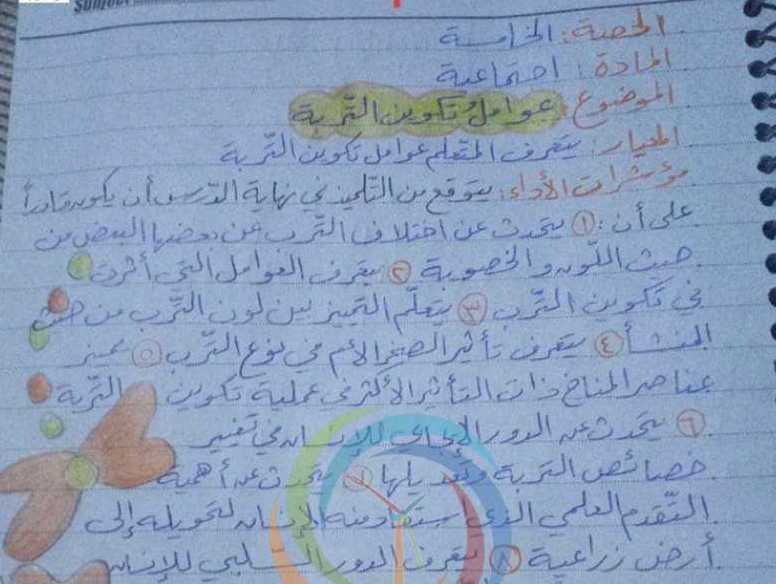 Subject
الحصة: الخامسة
المادة: اجتماعية
الموضوع: عوامل تكوين التّربة
المعيار: يتعرف المتعلم عوامل تكوين التّربة
مؤشرات الأداء: يتوقع من التلميذ في نهاية الدّرس أن يكون قادراً
على أن: ① يتحدث عن اختلاف التّرب عن بعضها البعض من
حيث اللّون والخصوبة ② يتعرف العوامل التي أثرت
في تكوين التّرب ③ يتعلّم التمييز بين لون التّرب من حيث
المنشأ ④ يتعرف تأثير الصخر الأم في نوع التّرب ⑤ يميز
عناصر المناخ ذات التأثير الأكثر في عملية تكوين التّربة
⑥ يتحدث عن الدور الإيجابي للإنسان في تغيير
خصائص التربة وتعديلها ⑦ يتحدث عن أهمية
التّقدم العلمي الذي ستفاد منه الإنسان لتحويله إلى
أرض زراعية ⑧ يتعرف الدور السّلبي للإنسان